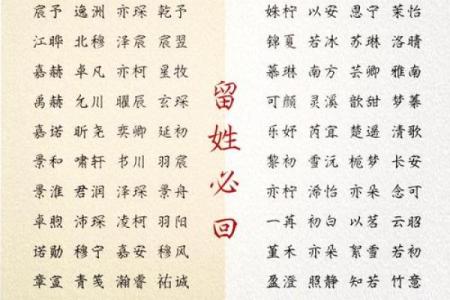 宸予 逸洲 亦琛 乾予
江晔 北穆 泽宸 宸翌
嘉赫 卓凡 亦柯 星牧
禹赫 允川 曜辰 玄琛
嘉诺 昕尧 奕卿 延初
景和 啸轩 书川 羽宸
景淮 君润 泽琛 景舟
卓煦 沛琛 凌柯 羽阳
诺勋 穆宁 嘉安 穆风
章宣 青笺 瀚睿 祐诚
留姓必回
姝柠 以安 思宁 茉怡
锦夏 若冰 苏琳 洛晴
慕琳 南方 芸卿 雅南
可颜 灵溪 歆甜 梦蓁
乐妤 芮宜 楚遥 清歌
黎初 雪沅 栀梦 长安
亦柠 浠怡 亦朵 念可
一苒 初白 以茗 云昭
堇禾 亦朵 絮雪 若初
盈澄 照静 知若 竹意